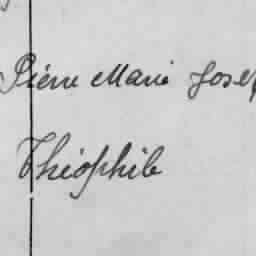 Pierre Marie Josep
Théophile